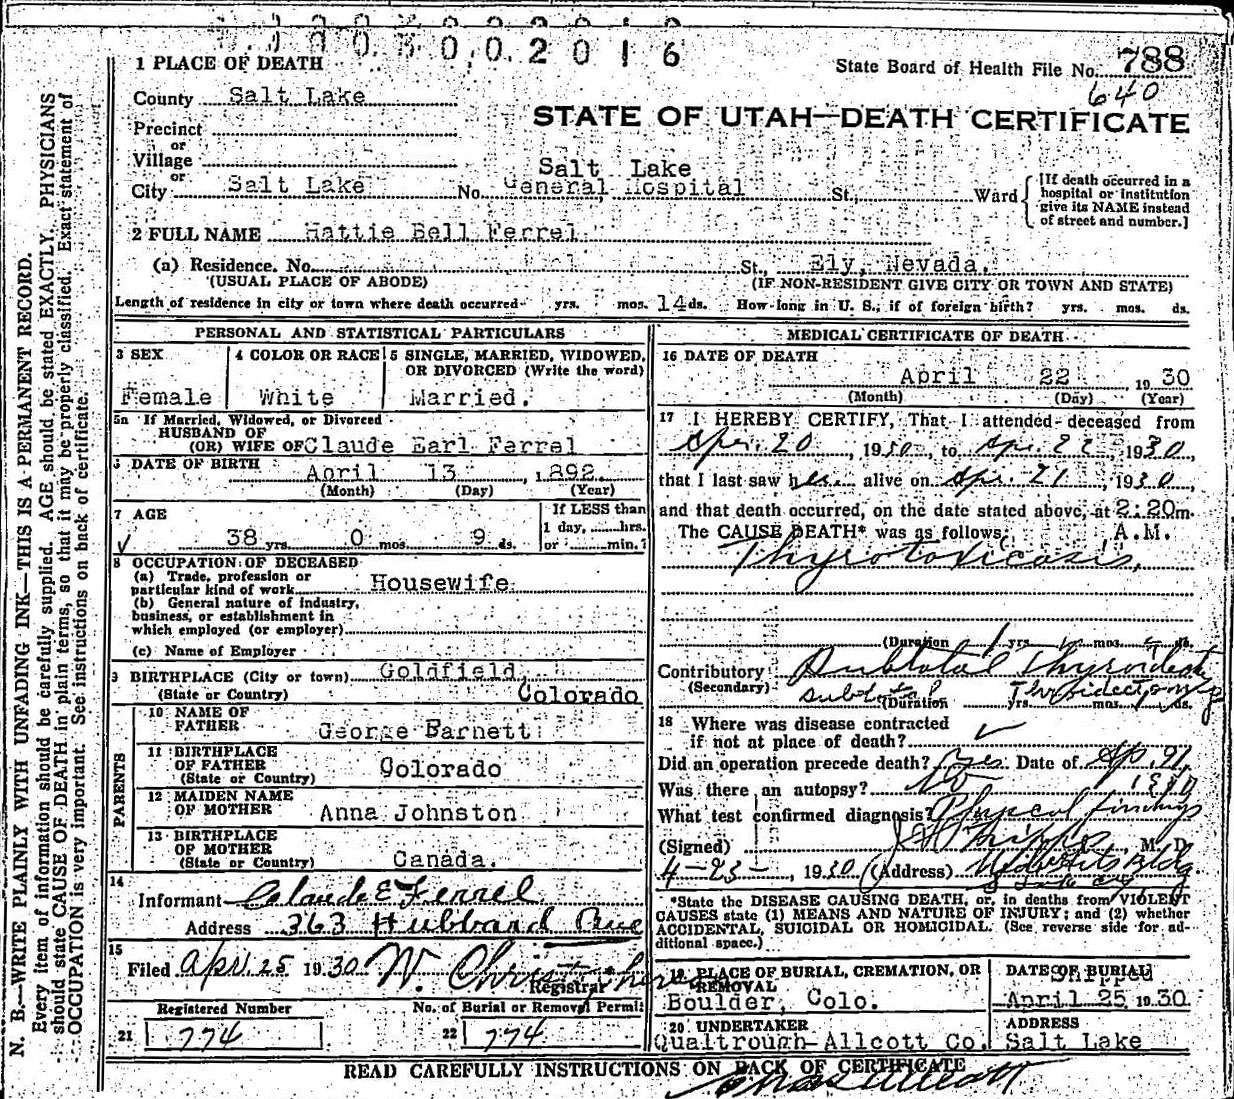 N. B.—WRITE PLAINLY WITH UNFADING INK—THIS IS A PERMANENT RECORD.
Every item of information should be carefully supplied. AGE should be stated EXACTLY. PHYSICIANS
should state CAUSE OF DEATH in plain terms, so that it may be properly classified. Exact statement of
OCCUPATION is very important. See instructions on back of certificate.
0 0 2 0 1 6
1 PLACE OF DEATH
State Board of Health File No. 788
640
County Salt Lake
STATE OF UTAH—DEATH CERTIFICATE
Precinct
or
Village
or
City Salt Lake No. Salt Lake General Hospital St., Ward
[If death occurred in a
hospital or institution
give its NAME instead
of street and number.]
2 FULL NAME Hattie Bell Ferrel
(a) Residence. No. St., Ely, Nevada.
(USUAL PLACE OF ABODE) (IF NON-RESIDENT GIVE CITY OR TOWN AND STATE)
Length of residence in city or town where death occurred yrs. mos. 14 ds. How long in U. S., if of foreign birth? yrs. mos. ds.
PERSONAL AND STATISTICAL PARTICULARS
3 SEX
Female
4 COLOR OR RACE
White
5 SINGLE, MARRIED, WIDOWED,
OR DIVORCED (Write the word)
Married.
5a If Married, Widowed, or Divorced
HUSBAND OF
(OR) WIFE OF Claude Earl Ferrel
6 DATE OF BIRTH April 13, 1892
(Month) (Day) (Year)
7 AGE
38 yrs. 0 mos. 9 ds.
If LESS than
1 day, hrs.
or min.?
8 OCCUPATION OF DECEASED
(a) Trade, profession or
particular kind of work Housewife
(b) General nature of industry,
business, or establishment in
which employed (or employer)
(c) Name of Employer
9 BIRTHPLACE (City or town) Goldfield,
(State or Country) Colorado
PARENTS
10 NAME OF
FATHER George Barnett
11 BIRTHPLACE
OF FATHER
(State or Country) Colorado
12 MAIDEN NAME
OF MOTHER Anna Johnston
13 BIRTHPLACE
OF MOTHER
(State or Country) Canada.
14
Informant Claude E Ferrel
Address 363 Hubbard Ave
15
Filed Apr. 25 1930 W. Christ
Registrar
Registered Number
21 774
No. of Burial or Removal Permit
22 774
MEDICAL CERTIFICATE OF DEATH
16 DATE OF DEATH
April 22 1930
(Month) (Day) (Year)
17 I HEREBY CERTIFY, That I attended deceased from
Apr. 20, 1930, to Apr. 22, 1930,
that I last saw her alive on Apr. 21, 1930,
and that death occurred, on the date stated above, at 2:20 m.
The CAUSE DEATH* was as follows: A.M.
Thyrotoxicosis,
(Duration 1 yrs mos. ds.
Contributory Subtotal Thyroidectomy
(Secondary) subtotal Thyroidectomy
(Duration yrs. mos. ds.
18 Where was disease contracted
if not at place of death? ✓
Did an operation precede death? yes Date of Apr. 21,
Was there an autopsy? No 1930
What test confirmed diagnosis? Physical findings
(Signed) M. D.
4-23-, 1930 (Address) Bldg.
*State the DISEASE CAUSING DEATH, or, in deaths from VIOLENT
CAUSES state (1) MEANS AND NATURE OF INJURY; and (2) whether
ACCIDENTAL, SUICIDAL OR HOMICIDAL. (See reverse side for ad-
ditional space.)
19 PLACE OF BURIAL, CREMATION, OR
REMOVAL
Boulder, Colo.
DATE OF BURIAL
Shipped
April 25 1930
20 UNDERTAKER
Qualtrough-Allcott Co.
ADDRESS
Salt Lake
READ CAREFULLY INSTRUCTIONS ON BACK OF CERTIFICATE